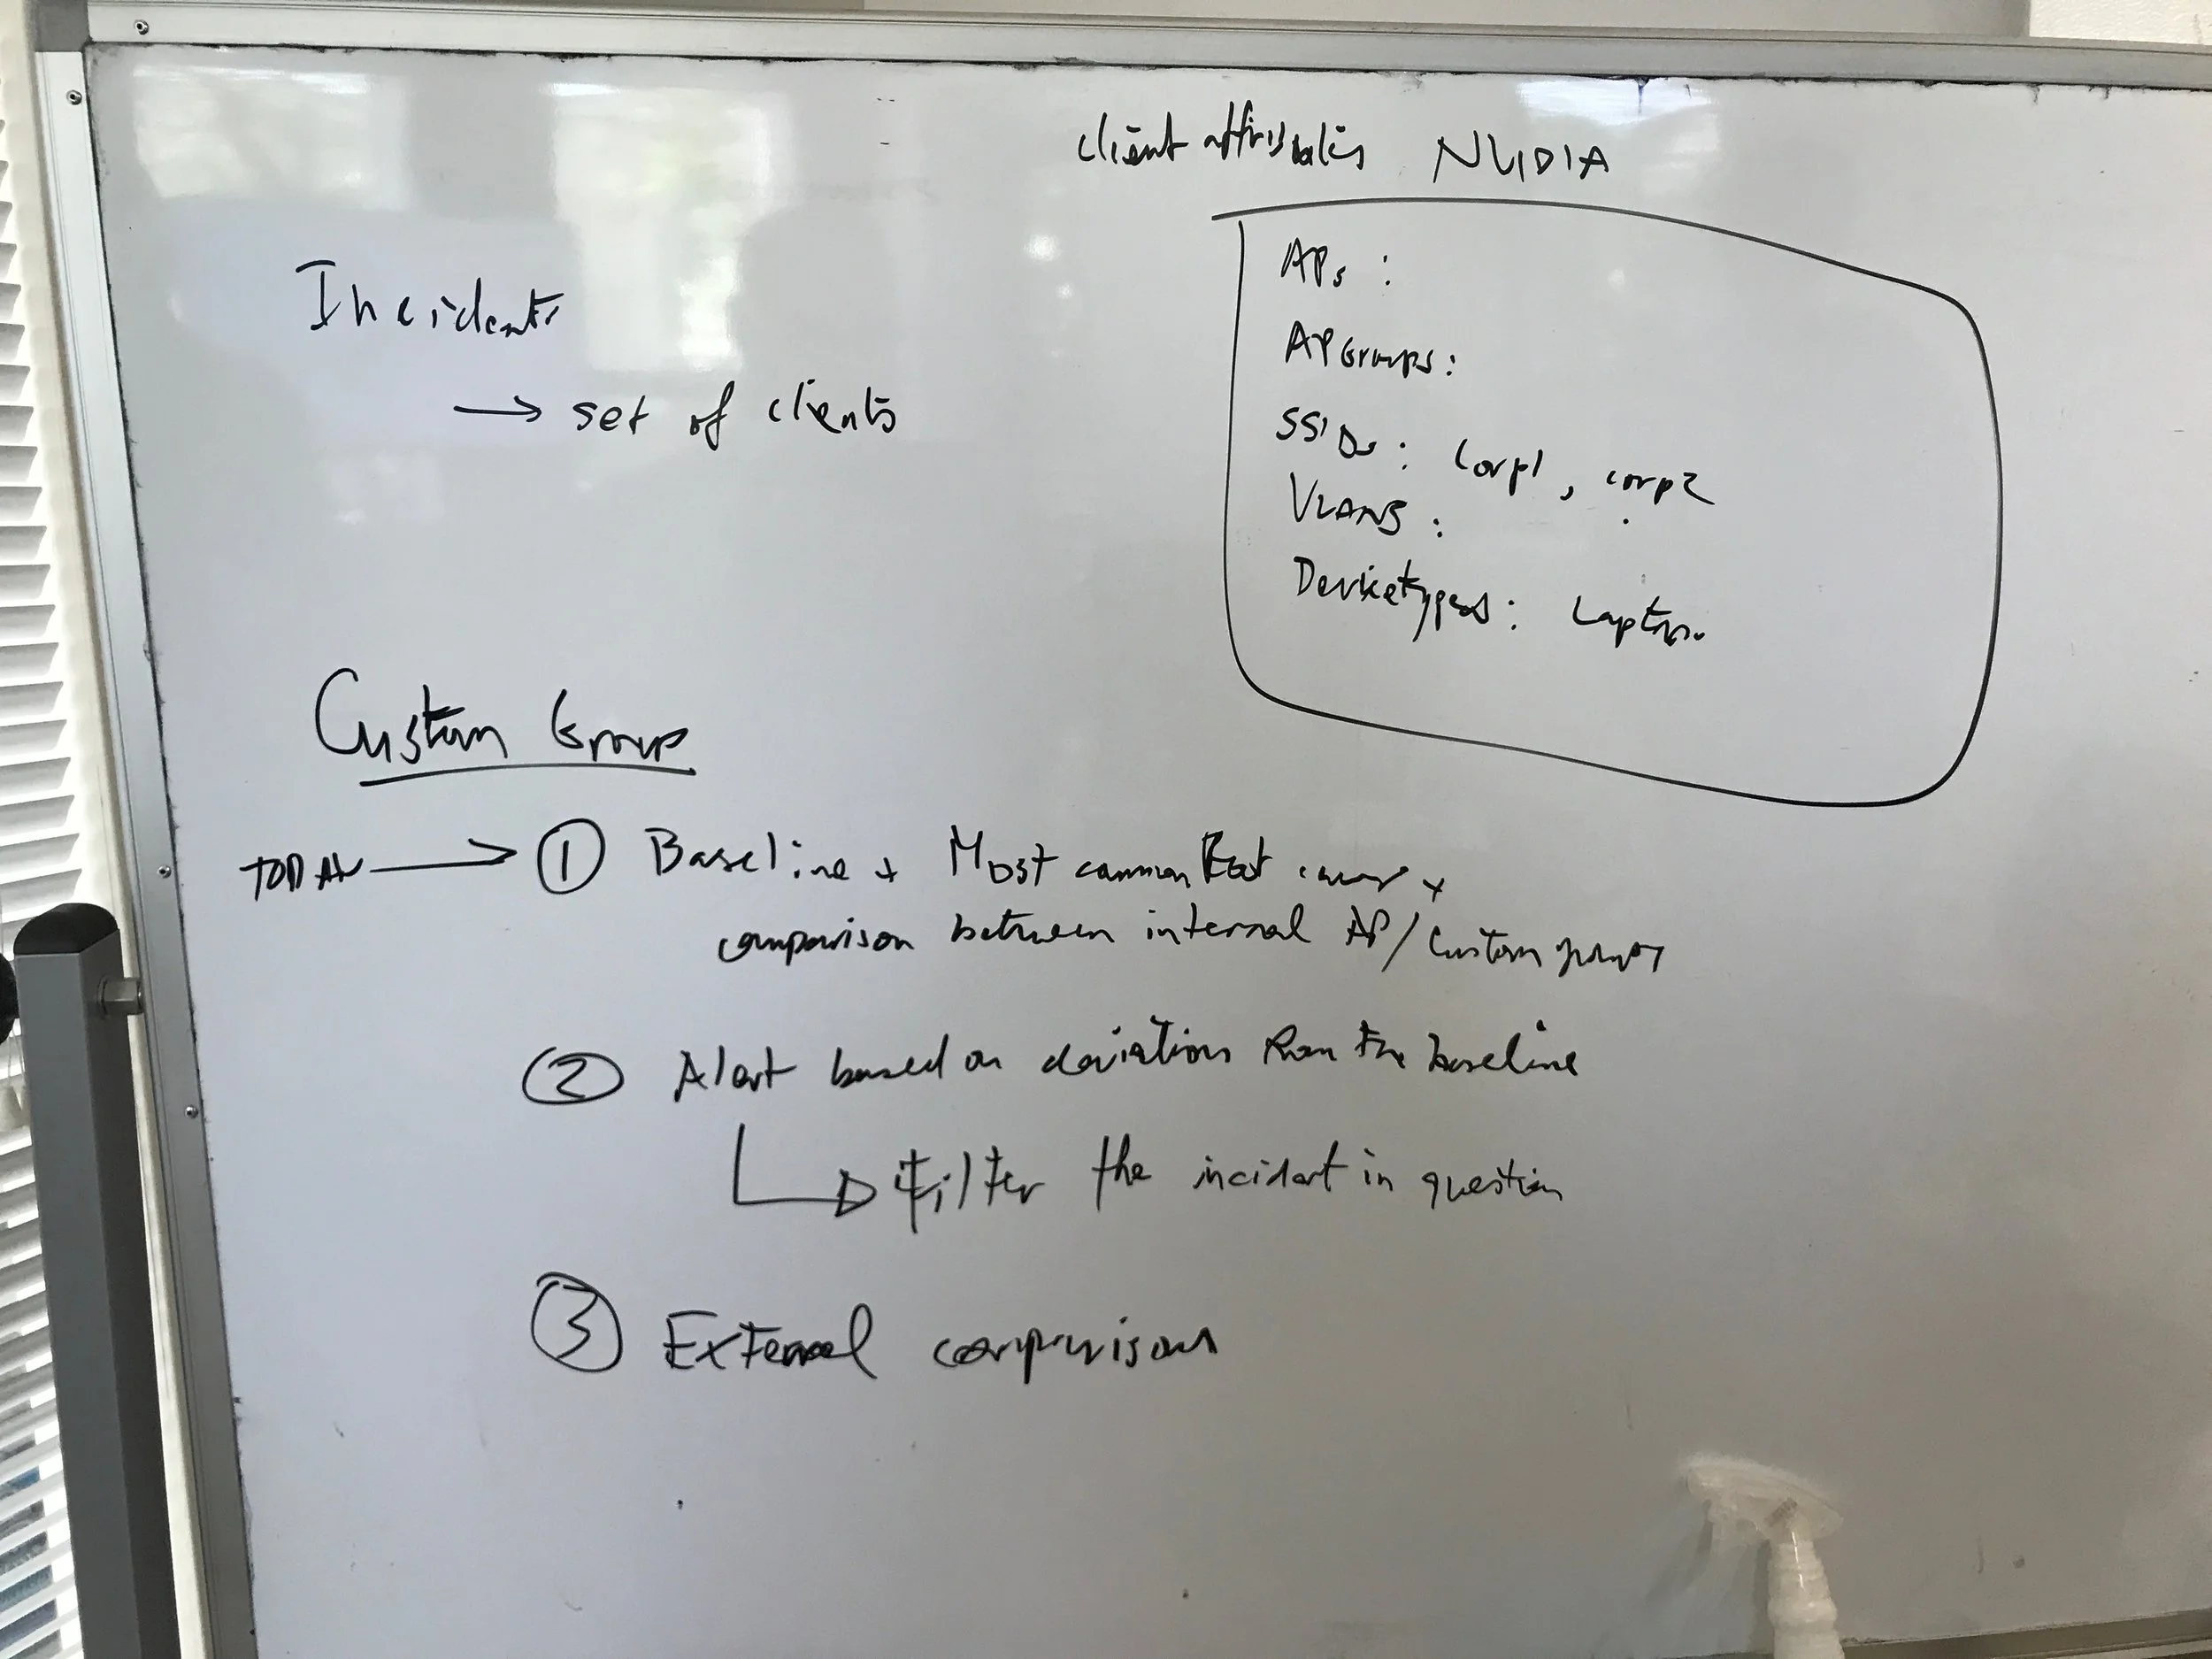 client attributes NVIDIA
Incidents
→ set of clients
APs :
AP Groups :
SSIDs : Corp1, corp2
VLANS :
Devicetypes : Laptop
Custom Group
TODAY → ① Baseline + Most common Root cause +
comparison between internal AP / Custom groups
② Alert based on deviations from the baseline
Filter the incident in question
③ External comparisons